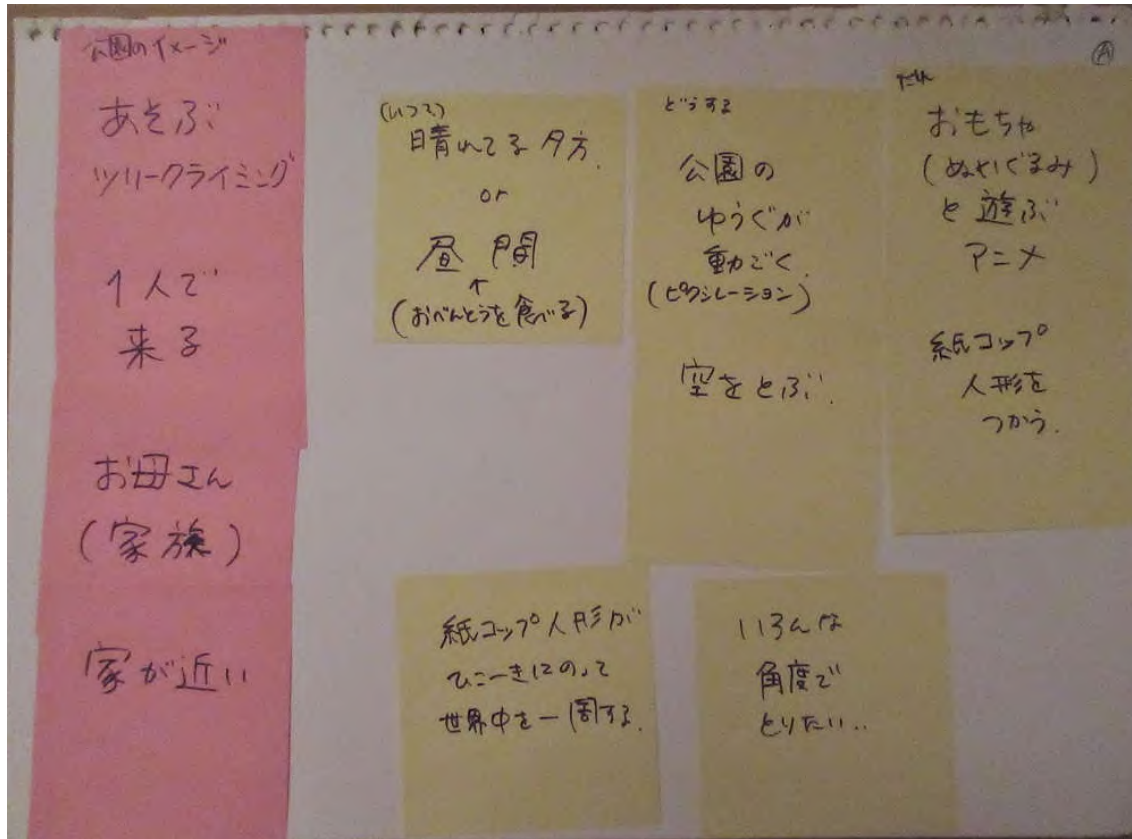 公園のイメージ
あそぶ
ツリークライミング
1人で
来る
お母さん
(家族)
家が近い
(いつ?)
晴れてる夕方.
or
昼間
↑
(おべんとうを食べる)
どうする
公園の
ゆうぐが
動ごく.
(ピクシレーション)
空をとぶ.
Ⓐ
だれ
おもちゃ
(ぬいぐるみ)
と遊ぶ
アニメ
紙コップ
人形を
つかう.
紙コップ人形が
ひこーきにのって
世界中を一周する.
いろんな
角度で
とりたい..